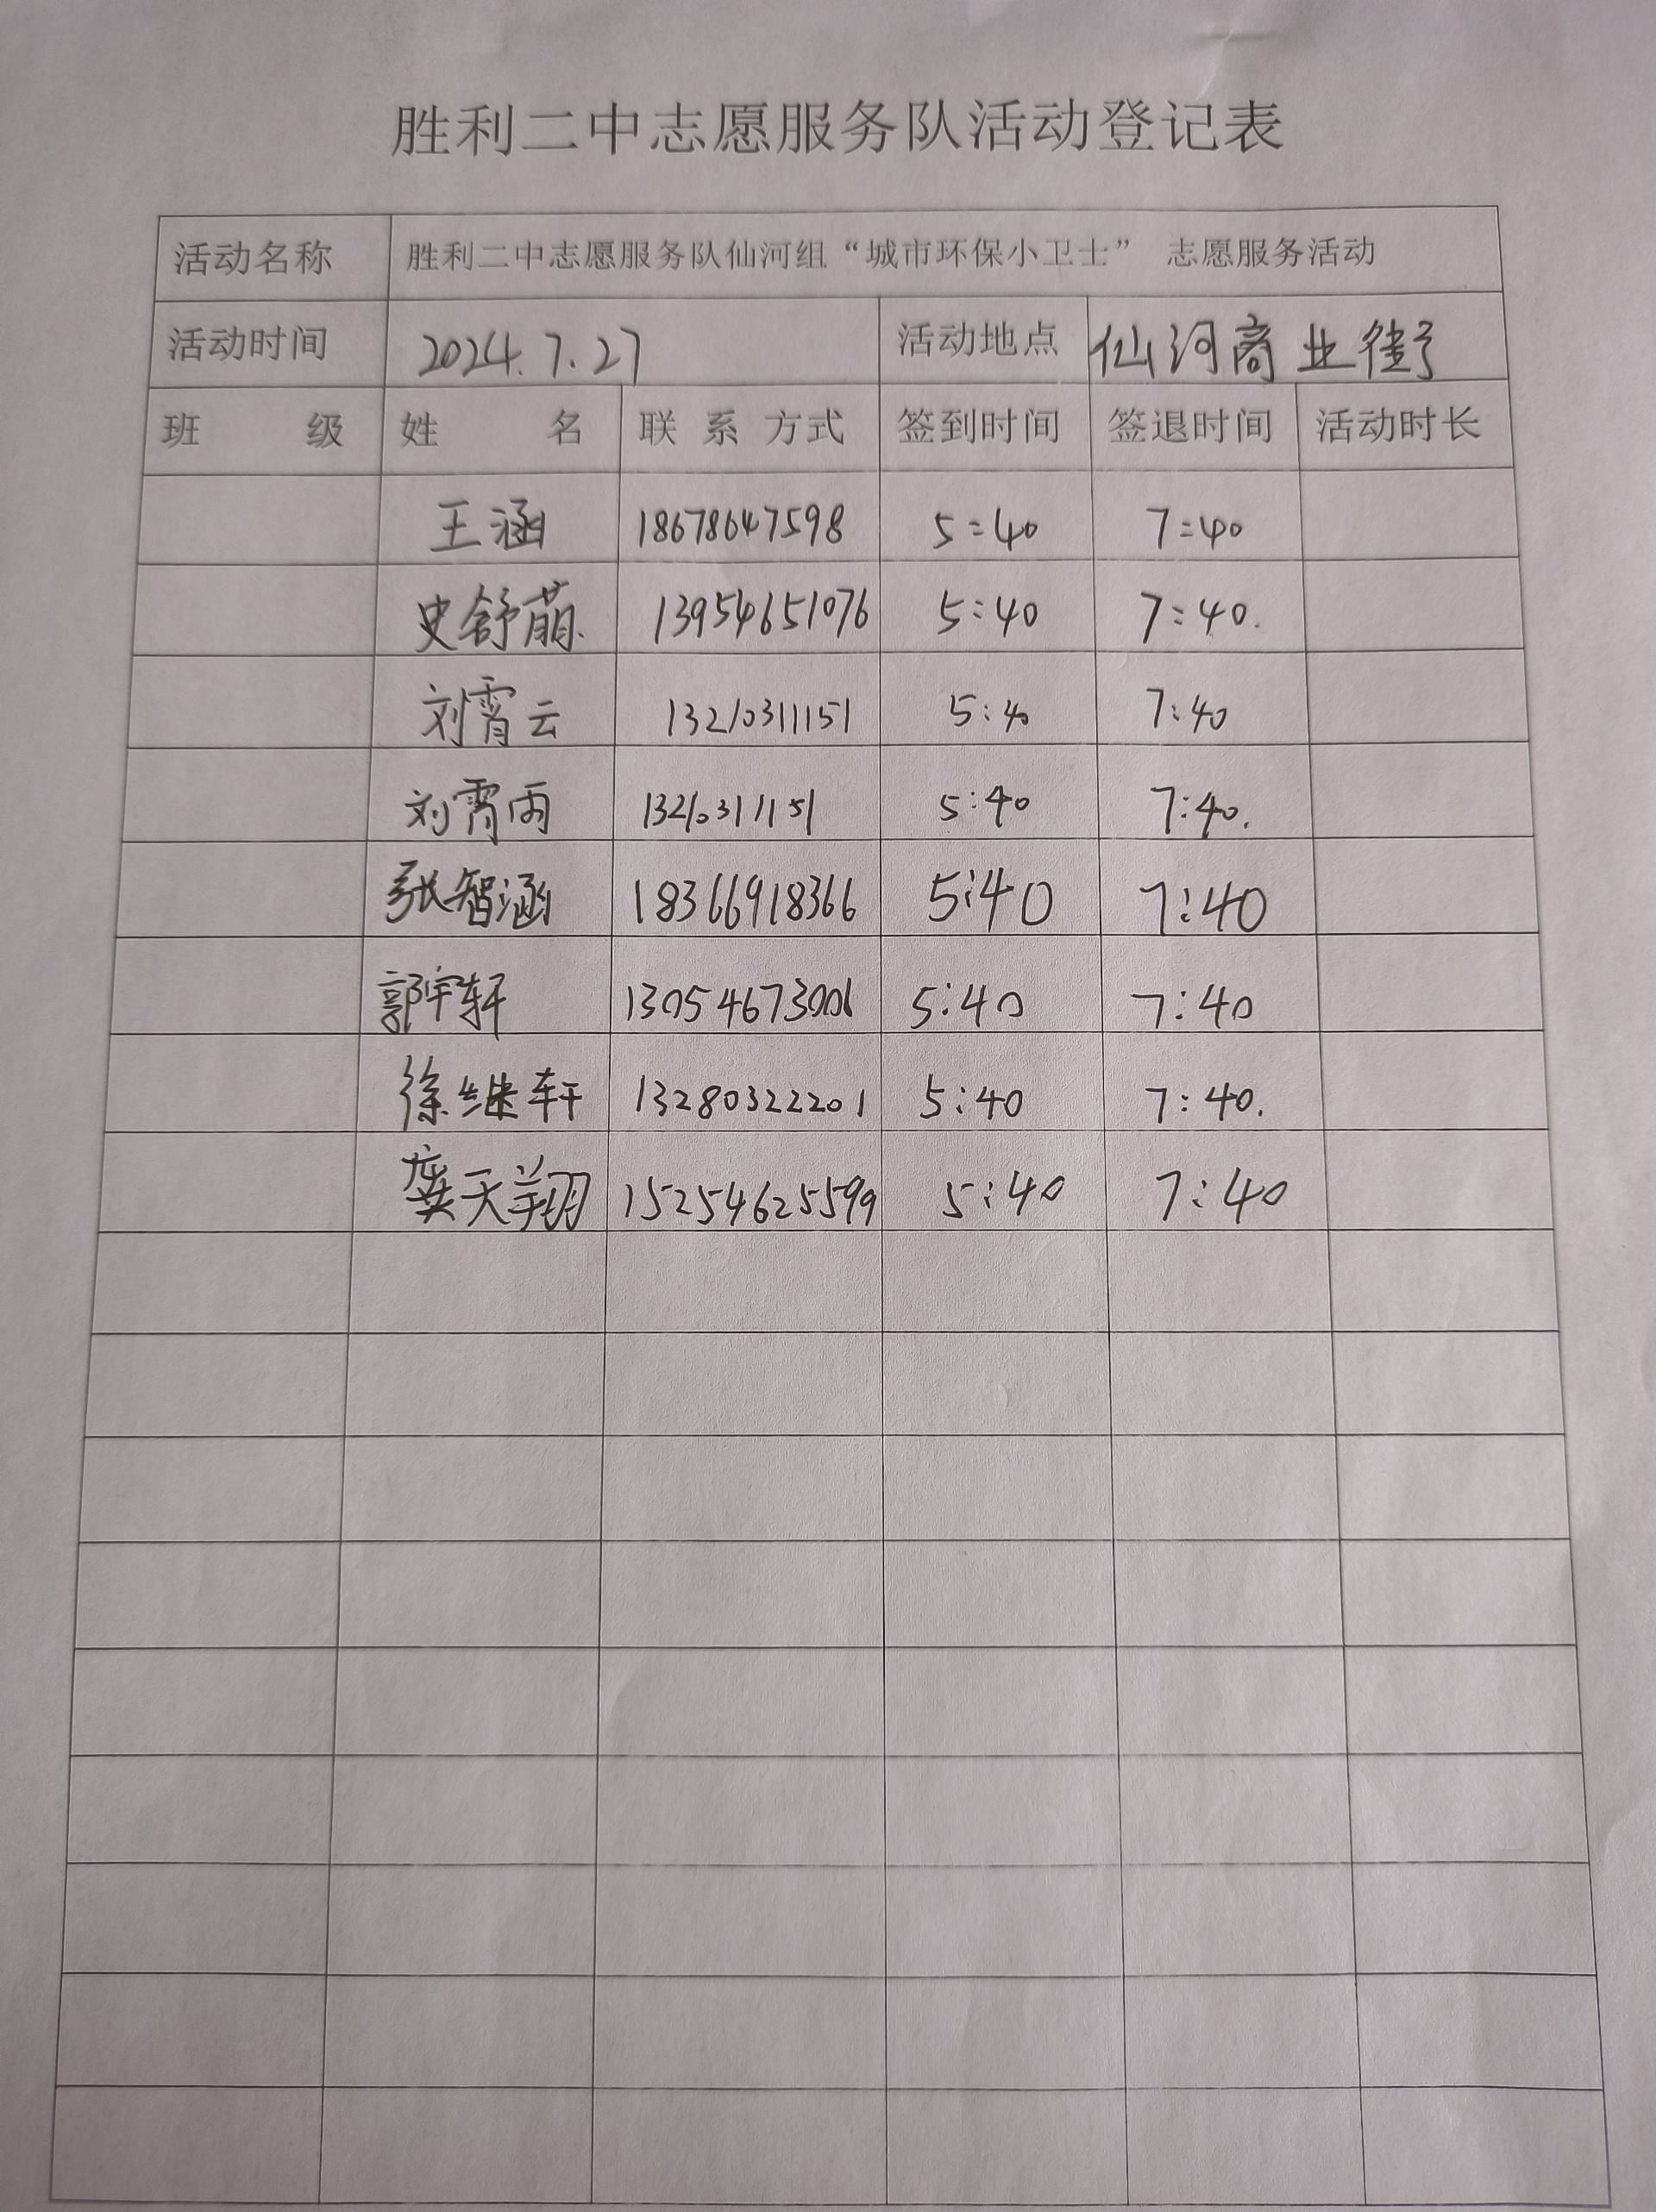 胜利二中志愿服务队活动登记表
活动名称 胜利二中志愿服务队仙河组“城市环保小卫士” 志愿服务活动
活动时间 2024.7.27 活动地点 仙河商业街
班 级 姓 名 联 系 方式 签到时间 签退时间 活动时长
王涵 18678647598 5:40 7:40
史舒萌 13954651076 5:40 7:40.
刘霄云 13210311151 5:40 7:40
刘霄雨 13210311151 5:40 7:40.
张智涵 18366918366 5:40 7:40
郭宇轩 13054673006 5:40 7:40
徐继轩 13280322201 5:40 7:40.
龚天翔 15254625599 5:40 7:40